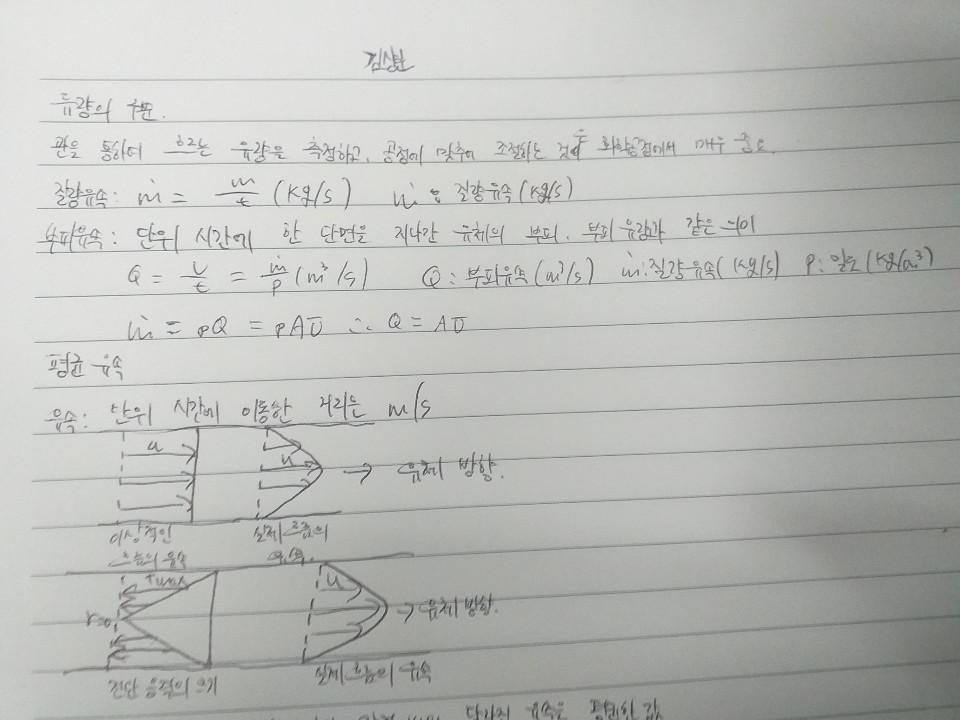 김상난
유량의 구분.
관을 통하여 흐르는 유량을 측정하고, 공정에 맞추어 조절하는 것은 화학공정에서 매우 중요.
질량유속: ṁ = m/t (kg/s) ṁ : 질량유속(kg/s)
부피유속: 단위 시간에 한 단면을 지나간 유체의 부피. 부피 유량과 같은 의미
Q = V/t = ṁ/ρ (m³/s) Q : 부피유속(m³/s) ṁ:질량유속(kg/s) ρ: 밀도(kg/m³)
ṁ = ρQ = ρAU ∴ Q = AU
평균 유속
유속: 단위 시간에 이동한 거리는 m/s
u u → 유체 방향.
이상적인 흐름의 유속
실제 흐름의 유속.
τmax u → 유체 방향.
r=0
전단 응력의 크기 실제 흐름의 유속
유속은 평균한 값